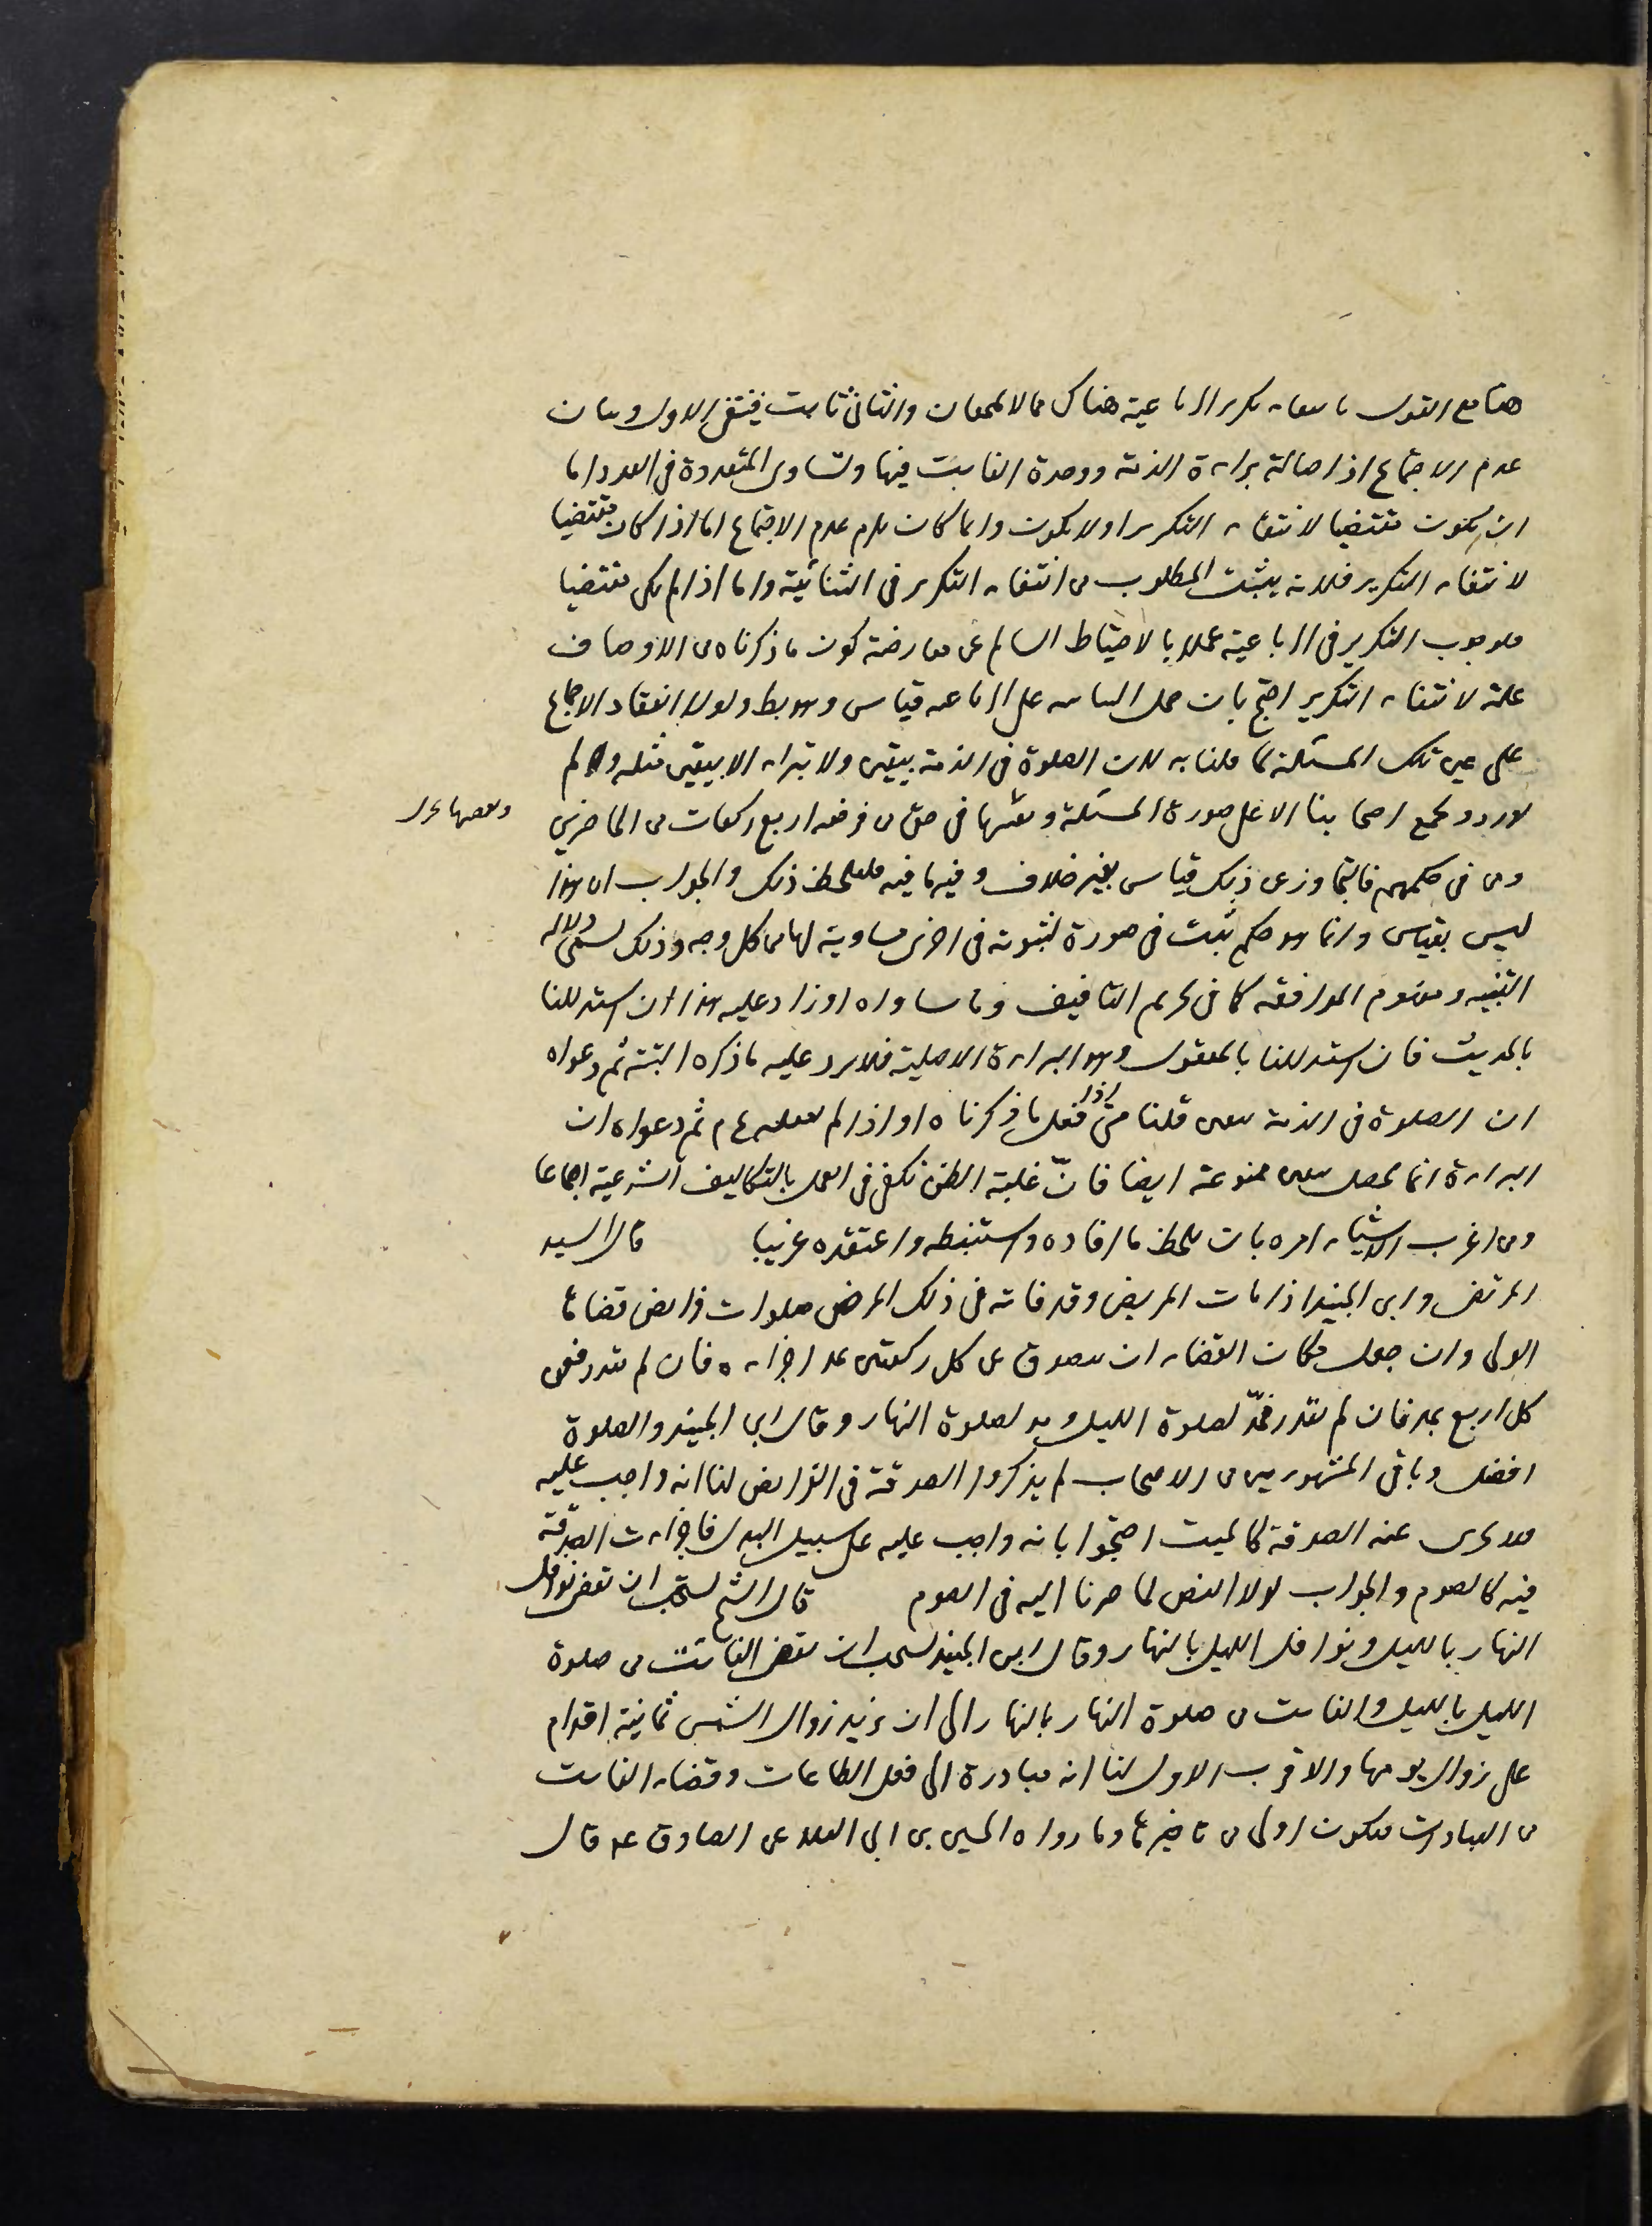 هنا مع القول بانتفاء تكرير الرباعية هناك مما لا يجتمعان والثانى ثابت فينتفى الاول وبيان
عدم الاجتماع اذ اصالة براءة الذمة ووحدة الفايت فيها وتساوى المتعددة فى العدد اما
ان يكون مقتضيا لانتفاء التكرير او لا يكون وايما كان يلزم عدم الاجتماع اما اذا كان مقتضيا
لانتفاء التكرير فلانه يثبت المطلوب من انتفاء التكرير فى الثنائية واما اذا لم يكن مقتضيا
فلوجوب التكرير فى الرباعية عملا بالاحتياط السالم عن معارضة كون ما ذكرناه من الاوصاف
علة لانتفاء التكرير احتج بان حمل الثنائيه على الرباعيه قياس وهو بط ولولا انعقاد الاجماع
على عين تلك المسئلة لما قلنا به لان الصلوة فى الذمة بيقين ولا تبراء الا بيقين مثله ولم
يورد ويجمع اصحابنا الا على صورة المسئلة وتعينها فى حق من فرضه اربع ركعات من الحاضرين
ومن فى حكمهم فالتجاوز عن ذلك قياس بغير خلاف وفيه ما فيه فليلحظ ذلك والجواب ان هذا
ليس بقياس وانما هو حكم يثبت فى صورة لثبوته فى اخرى مساوية لها من كل وجه وذلك يسمى دلاله
التنبيه ومفهوم الموافقه كما فى تحريم التافيف وما ساواه او زاد عليه هذا ان استدللنا
بالحديث فان استدللنا بالمعقول وهو البراءة الاصلية فلا يرد عليه ما ذكره البتة ثم دعواه
ان الصلوة فى الذمة بيقين قلنا متى اذا فعل ما ذكرناه او اذا لم يفعله ع م ثم دعواه ان
البراءة انما تحصل بيقين ممنوعة ايضا فانّ غلبة الظن تكفى فى العمل بالتكاليف الشرعية اجماعا
ومن اغرب الاشياء امره بان يلحظ ما افاده واستنبطه واعتقده غريبا قال السيد
المرتضى وابن الجنيد اذا مات المريض وقد فاته فى ذلك المرض صلوات فرايض قضاها
الولى وان جعل مكان القضاء ان يتصدق عن كل ركعتين بمد اجزاءه فان لم يقدر فعن
كل اربع بمد فان لم يقدر فمدّ لصلوة الليل ومد لصلوة النهار وقال ابن الجنيد والصلوة
افضل وباقى المشهورين من الاصحاب لم يذكروا الصدقة فى الفرايض لنا انه واجب عليه
فلا تجزى عنه الصدقة كالميت احتجوا بانه واجب عليه على سبيل البدل فاجزاءت الصدقة
فيه كالصوم والجواب لولا النص لما صرنا اليه فى الصوم قال الشيخ يستحب ان تقضى نوافل
النهار بالليل ونوافل الليل بالنهار وقال ابن الجنيد يستحب ان تقضى الفائت من صلوة
الليل بالليل والفايت من صلوة النهار بالنهار الى ان يزيد زوال الشمس ثمانية اقدام
على زوال يومها والاقرب الاول لنا انه مبادرة الى فعل الطاعات وقضاء الفايت
من العبادات فيكون اولى من تاخيرها وما رواه الحسين بن ابى العلا عن الصادق عم قال